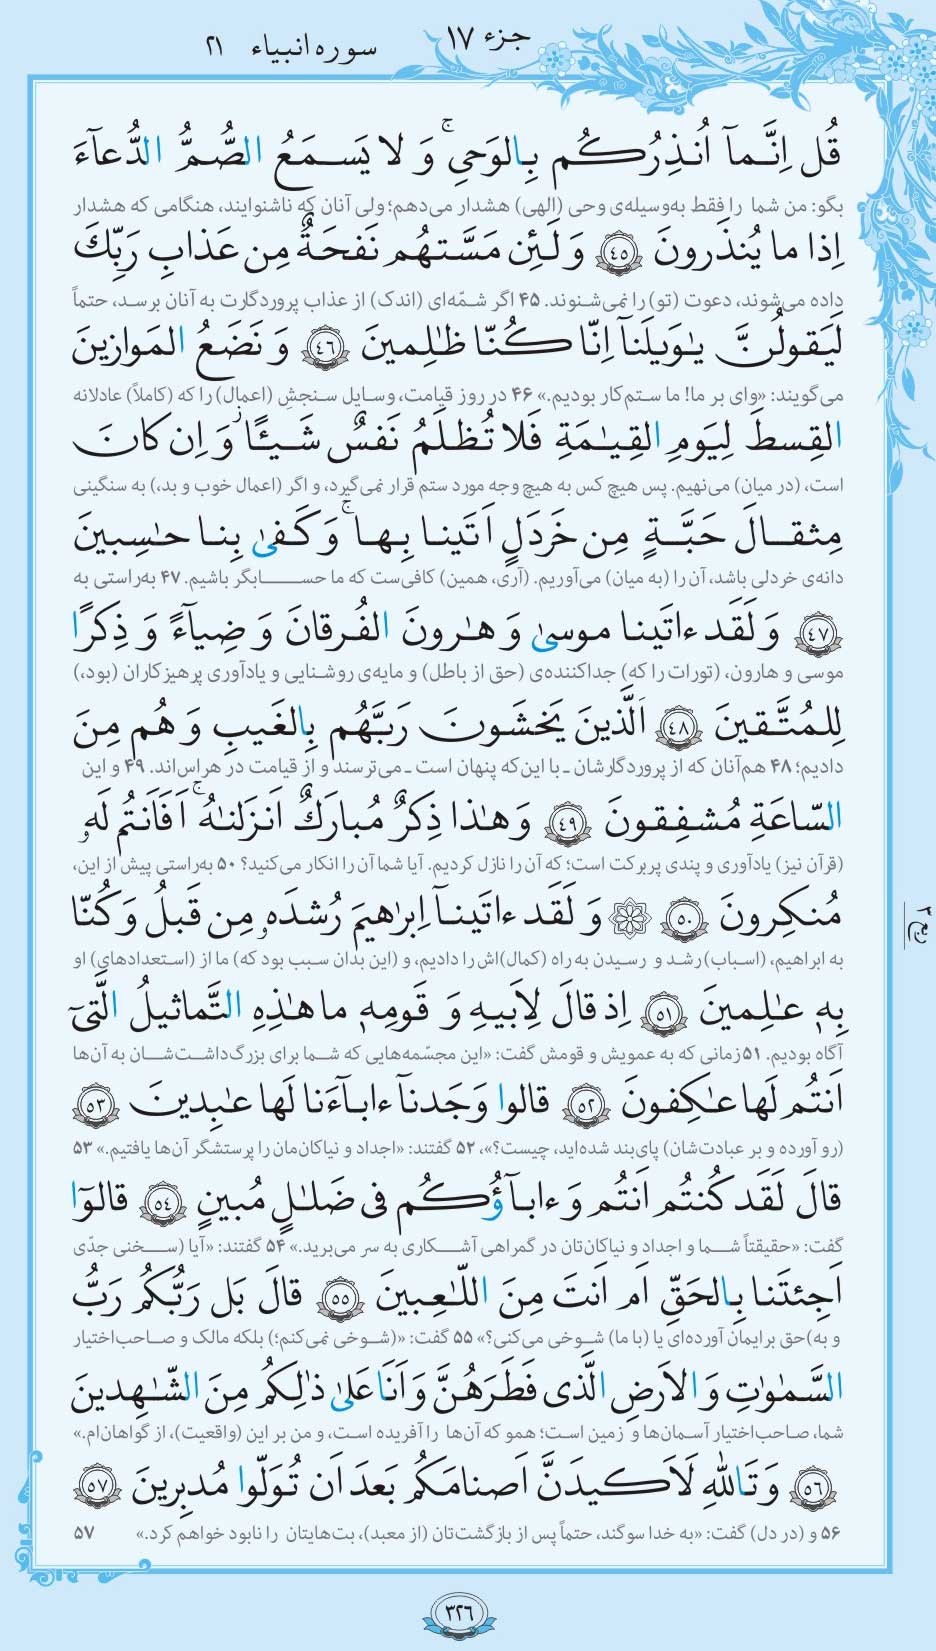 جزء ۱۷
سوره انبیاء ۲۱
قُل اِنَّمآ اُنذِرُكُم بِالوَحیِ ۚ وَ لا یَسمَعُ الصُّمُّ الدُّعآءَ
بگو: من شما را فقط به‌وسیله‌ی وحی (الهی) هشدار می‌دهم؛ ولی آنان که ناشنوایند، هنگامی که هشدار
اِذا ما یُنذَرونَ ﴿٤٥﴾ وَ لَئِن مَسَّتهُم نَفحَةٌ مِن عَذابِ رَبِّكَ
داده می‌شوند، دعوت (تو) را نمی‌شنوند. ۴۵ اگر شمّه‌ای (اندک) از عذاب پروردگارت به آنان برسد، حتماً
لَیَقولُنَّ یٰوَیلَنآ اِنّا كُنّا ظٰلِمینَ ﴿٤٦﴾ وَ نَضَعُ المَوازینَ
می‌گویند: «وای بر ما! ما ستم‌کار بودیم.» ۴۶ در روز قیامت، وسایل سنجشِ (اعمال) را که (کاملاً) عادلانه
القِسطَ لِیَومِ القِیٰمَةِ فَلا تُظلَمُ نَفسٌ شَیـًٔا ۖ وَ اِن كانَ
است، (در میان) می‌نهیم. پس هیچ کس به هیچ وجه مورد ستم قرار نمی‌گیرد، و اگر (اعمال خوب و بد،) به سنگینی
مِثقالَ حَبَّةٍ مِن خَردَلٍ اَتَینا بِها ۗ وَ كَفیٰ بِنا حٰسِبینَ
دانه‌ی خردلی باشد، آن را (به میان) می‌آوریم. (آری، همین) کافی‌ست که ما حسابگر باشیم. ۴۷ به‌راستی به
﴿٤٧﴾ وَ لَقَد ءاتَینا موسیٰ وَ هٰرونَ الفُرقانَ وَ ضِیآءً وَ ذِكرًا
موسی و هارون، (تورات را که) جداکننده‌ی (حق از باطل) و مایه‌ی روشنایی و یادآوری پرهیزکاران (بود،)
لِلمُتَّقینَ ﴿٤٨﴾ اَلَّذینَ یَخشَونَ رَبَّهُم بِالغَیبِ وَ هُم مِنَ
دادیم؛ ۴۸ هم‌آنان که از پروردگارشان ـ با این‌که پنهان است ـ می‌ترسند و از قیامت در هراس‌اند. ۴۹ و این
السّاعَةِ مُشفِقونَ ﴿٤٩﴾ وَ هٰذا ذِكرٌ مُبارَكٌ اَنزَلنٰهُ ۚ اَفَاَنتُم لَهۥ
(قرآن نیز) یادآوری و پندی پربرکت است؛ که آن را نازل کردیم. آیا شما آن را انکار می‌کنید؟ ۵۰ به‌راستی پیش از این،
مُنكِرونَ ﴿٥٠﴾ ۞ وَ لَقَد ءاتَینآ اِبرٰهیمَ رُشدَهۥ مِن قَبلُ وَ كُنّا
به ابراهیم، (اسباب) رشد و رسیدن به راه (کمال)اش را دادیم، و (این بدان سبب بود که) ما از (استعدادهای) او
بِهۦ عٰلِمینَ ﴿٥١﴾ اِذ قالَ لِاَبیهِ وَ قَومِهۦ ما هٰذِهِ التَّماثیلُ الَّتیٓ
آگاه بودیم. ۵۱ زمانی که به عمویش و قومش گفت: «این مجسّمه‌هایی که شما برای بزرگ‌داشت‌شان به آن‌ها
اَنتُم لَها عٰكِفونَ ﴿٥٢﴾ قالوا وَجَدنآ ءابآءَنا لَها عٰبِدینَ ﴿٥٣﴾
(رو آورده و بر عبادت‌شان) پای‌بند شده‌اید، چیست؟»، ۵۲ گفتند: «اجداد و نیاکان‌مان را پرستشگر آن‌ها یافتیم.» ۵۳
قالَ لَقَد كُنتُم اَنتُم وَ ءابآؤُكُم فی ضَلٰلٍ مُبینٍ ﴿٥٤﴾ قالوٓا
گفت: «حقیقتاً شما و اجداد و نیاکان‌تان در گمراهی آشکاری به سر می‌برید.» ۵۴ گفتند: «آیا (سخنی جدّی
اَجِئتَنا بِالحَقِّ اَم اَنتَ مِنَ اللّٰعِبینَ ﴿٥٥﴾ قالَ بَل رَبُّكُم رَبُّ
و به)حق برایمان آورده‌ای یا (با ما) شوخی می‌کنی؟» ۵۵ گفت: «(شوخی نمی‌کنم؛) بلکه مالک و صاحب‌اختیار
السَّمٰوٰتِ وَ الاَرضِ الَّذی فَطَرَهُنَّ وَ اَنَا عَلیٰ ذٰلِكُم مِنَ الشّٰهِدینَ
شما، صاحب‌اختیار آسمان‌ها و زمین است؛ همو که آن‌ها را آفریده است، و من بر این (واقعیت)، از گواهان‌ام.»
﴿٥٦﴾ وَ تَاللّٰهِ لَاَكیدَنَّ اَصنامَكُم بَعدَ اَن تُوَلّوا مُدبِرینَ ﴿٥٧﴾
۵۶ و (در دل) گفت: «به خدا سوگند، حتماً پس از بازگشت‌تان (از معبد)، بت‌هایتان را نابود خواهم کرد.» ۵۷
ربع ۳
۳۲۶